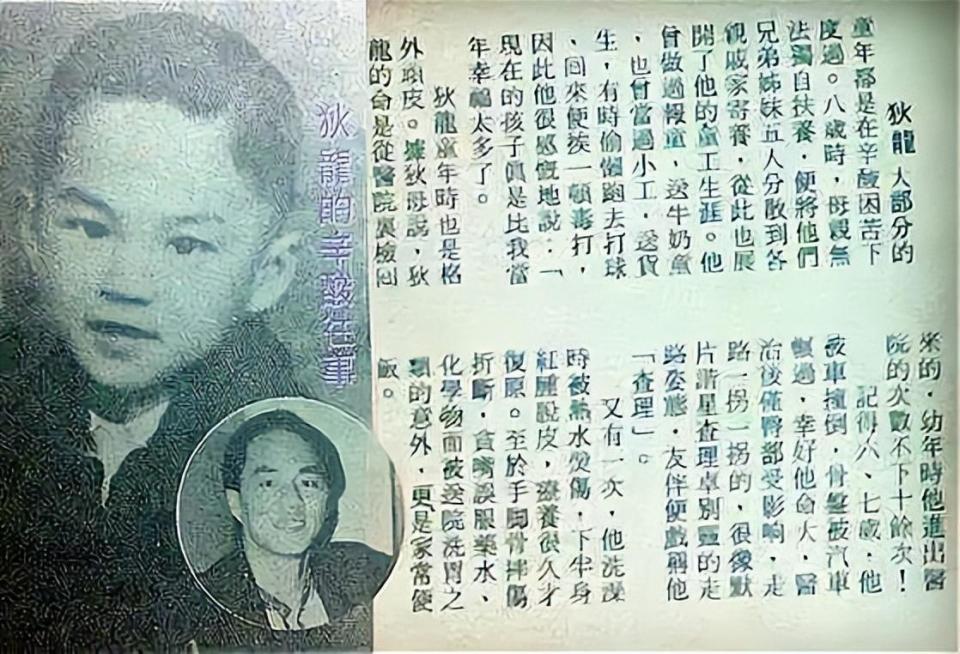 狄龍的辛酸往事
狄龍 大部分的
童年都是在辛酸困苦下
度過。八歲時,母親無
法獨自扶養,便將他們
兄弟姊妹五人分散到各
親戚家寄養,從此也展
開了他的童工生涯。他
曾做過報童,送牛奶童
,也曾當過小工,送貨
生,有時偷懶跑去打球
,回來便挨一頓毒打,
因此他很感慨地說:「
現在的孩子真是比我當
年幸福太多了。
狄龍童年時也是格
外頑皮。據狄母說,狄
龍的命是從醫院裏檢回
來的,幼年時他進出醫
院的次數不下十餘次!
記得六、七歲,他
被車撞倒,骨盤被汽車
輾過,幸好他命大,醫
治後僅臀部受影响,走
路一拐一拐的,很像默
片諧星查理卓別靈的走
路姿態,友伴便戲稱他
「查理」。
又有一次,他洗澡
時被熱水燙傷,下半身
紅腫脫皮,療養很久才
復原。至於手脚骨摔傷
折斷,貪嘴誤服藥水、
化學物而被送院洗胃之
類的意外,更是家常便
飯。